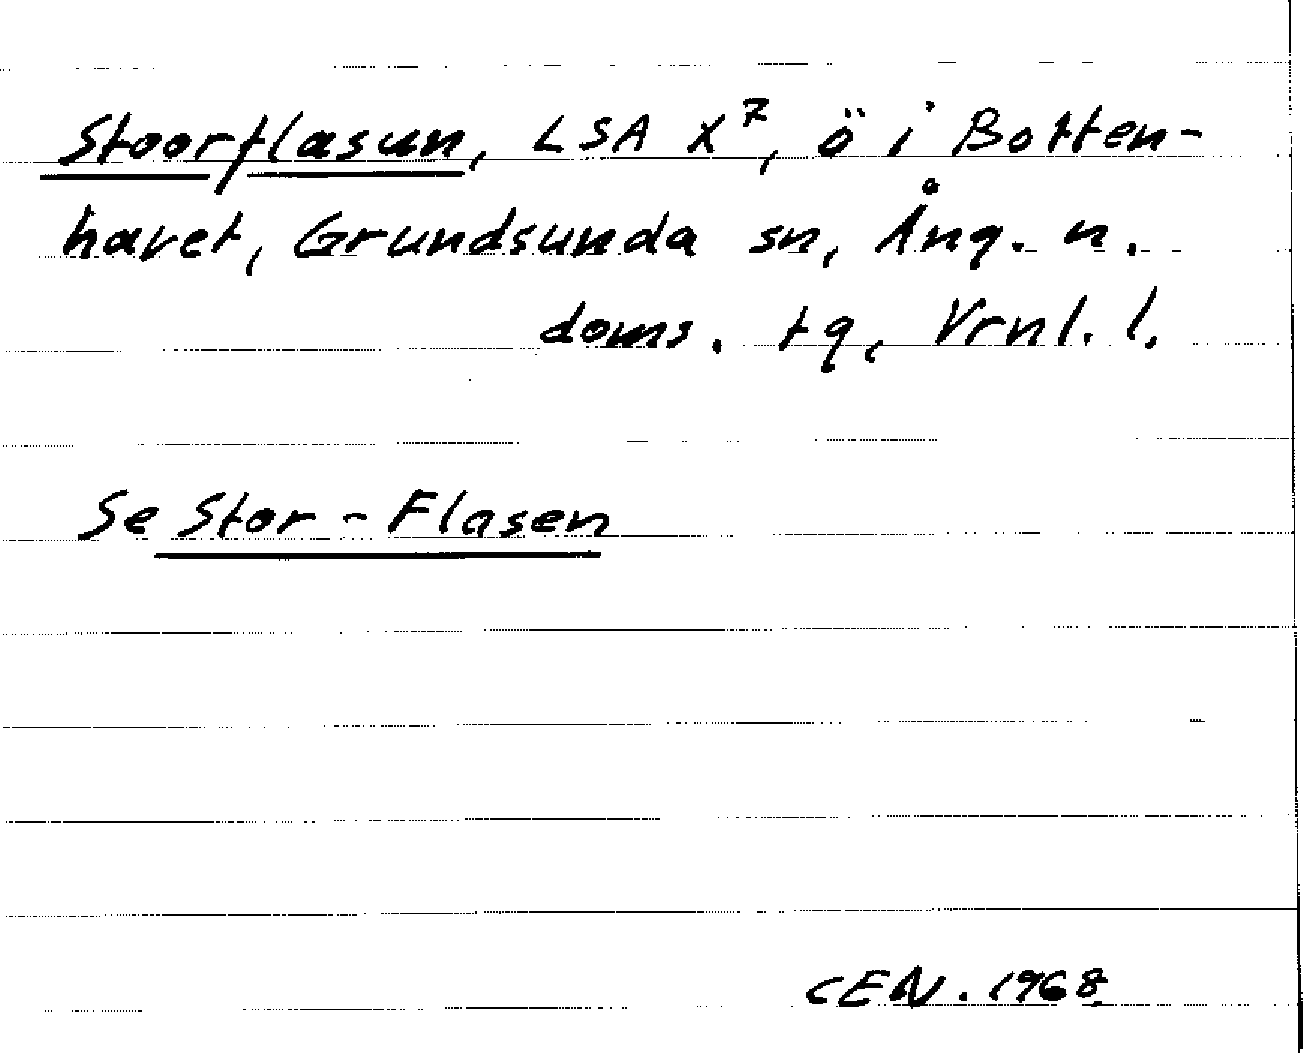 Stoorflasun, LSA X⁷, ö i Botten-
havet, Grundsunda sn, Ång. n.
doms. tg, Vrnl. l.
Se Stor-Flasen
CEN. 1968